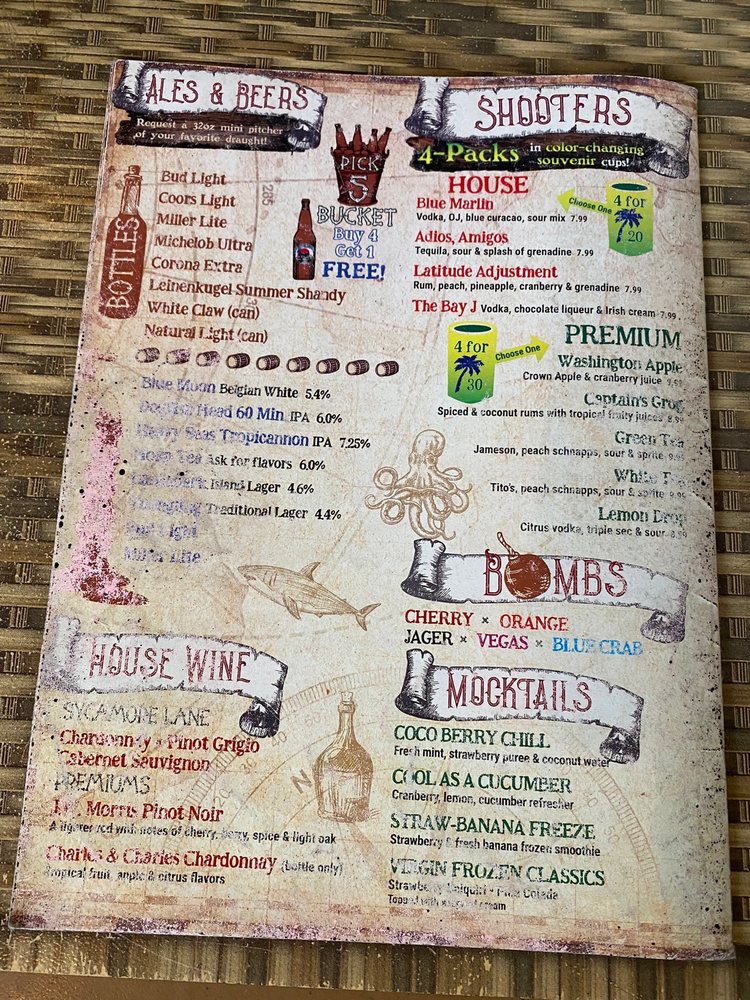 ALES & BEERS
Request a 32oz mini pitcher
of your favorite draught!
BOTTLES
Bud Light
Coors Light
Miller Lite
Michelob Ultra
Corona Extra
Leinenkugel Summer Shandy
White Claw (can)
Natural Light (can)
PICK
5
BUCKET
Buy 4
Get 1
FREE!
Blue Moon Belgian White 5.4%
Dogfish Head 60 Min IPA 6.0%
Heavy Seas Tropicannon IPA 7.25%
Tea Ask for flavors 6.0%
Island Lager 4.6%
Traditional Lager 4.4%
Light
Miller Lite
HOUSE WINE
SYCAMORE LANE
Chardonnay * Pinot Grigio
Cabernet Sauvignon
PREMIUMS
J.W. Morris Pinot Noir
A lighter red with notes of cherry, berry, spice & light oak
Charles & Charles Chardonnay (bottle only)
Tropical fruit, apple & citrus flavors
SHOOTERS
4-Packs in color-changing
souvenir cups!
HOUSE
Choose One
4 for
20
Blue Marlin
Vodka, OJ, blue curacao, sour mix 7.99
Adios, Amigos
Tequila, sour & splash of grenadine 7.99
Latitude Adjustment
Rum, peach, pineapple, cranberry & grenadine 7.99
The Bay J Vodka, chocolate liqueur & Irish cream 7.99
4 for
30
Choose One
PREMIUM
Washington Apple
Crown Apple & cranberry juice 9.99
Captain's Grog
Spiced & coconut rums with tropical fruity juices
Green Tea
Jameson, peach schnapps, sour & sprite 9.99
White Tea
Tito's, peach schnapps, sour & sprite 9.99
Lemon Drop
Citrus vodka, triple sec & sour
BOMBS
CHERRY * ORANGE
JAGER * VEGAS * BLUE CRAB
MOCKTAILS
COCO BERRY CHILL
Fresh mint, strawberry puree & coconut water
COOL AS A CUCUMBER
Cranberry, lemon, cucumber refresher
STRAW-BANANA FREEZE
Strawberry & fresh banana frozen smoothie
VIRGIN FROZEN CLASSICS
Strawberry Daiquiri * Pina Colada
Topped with whipped cream